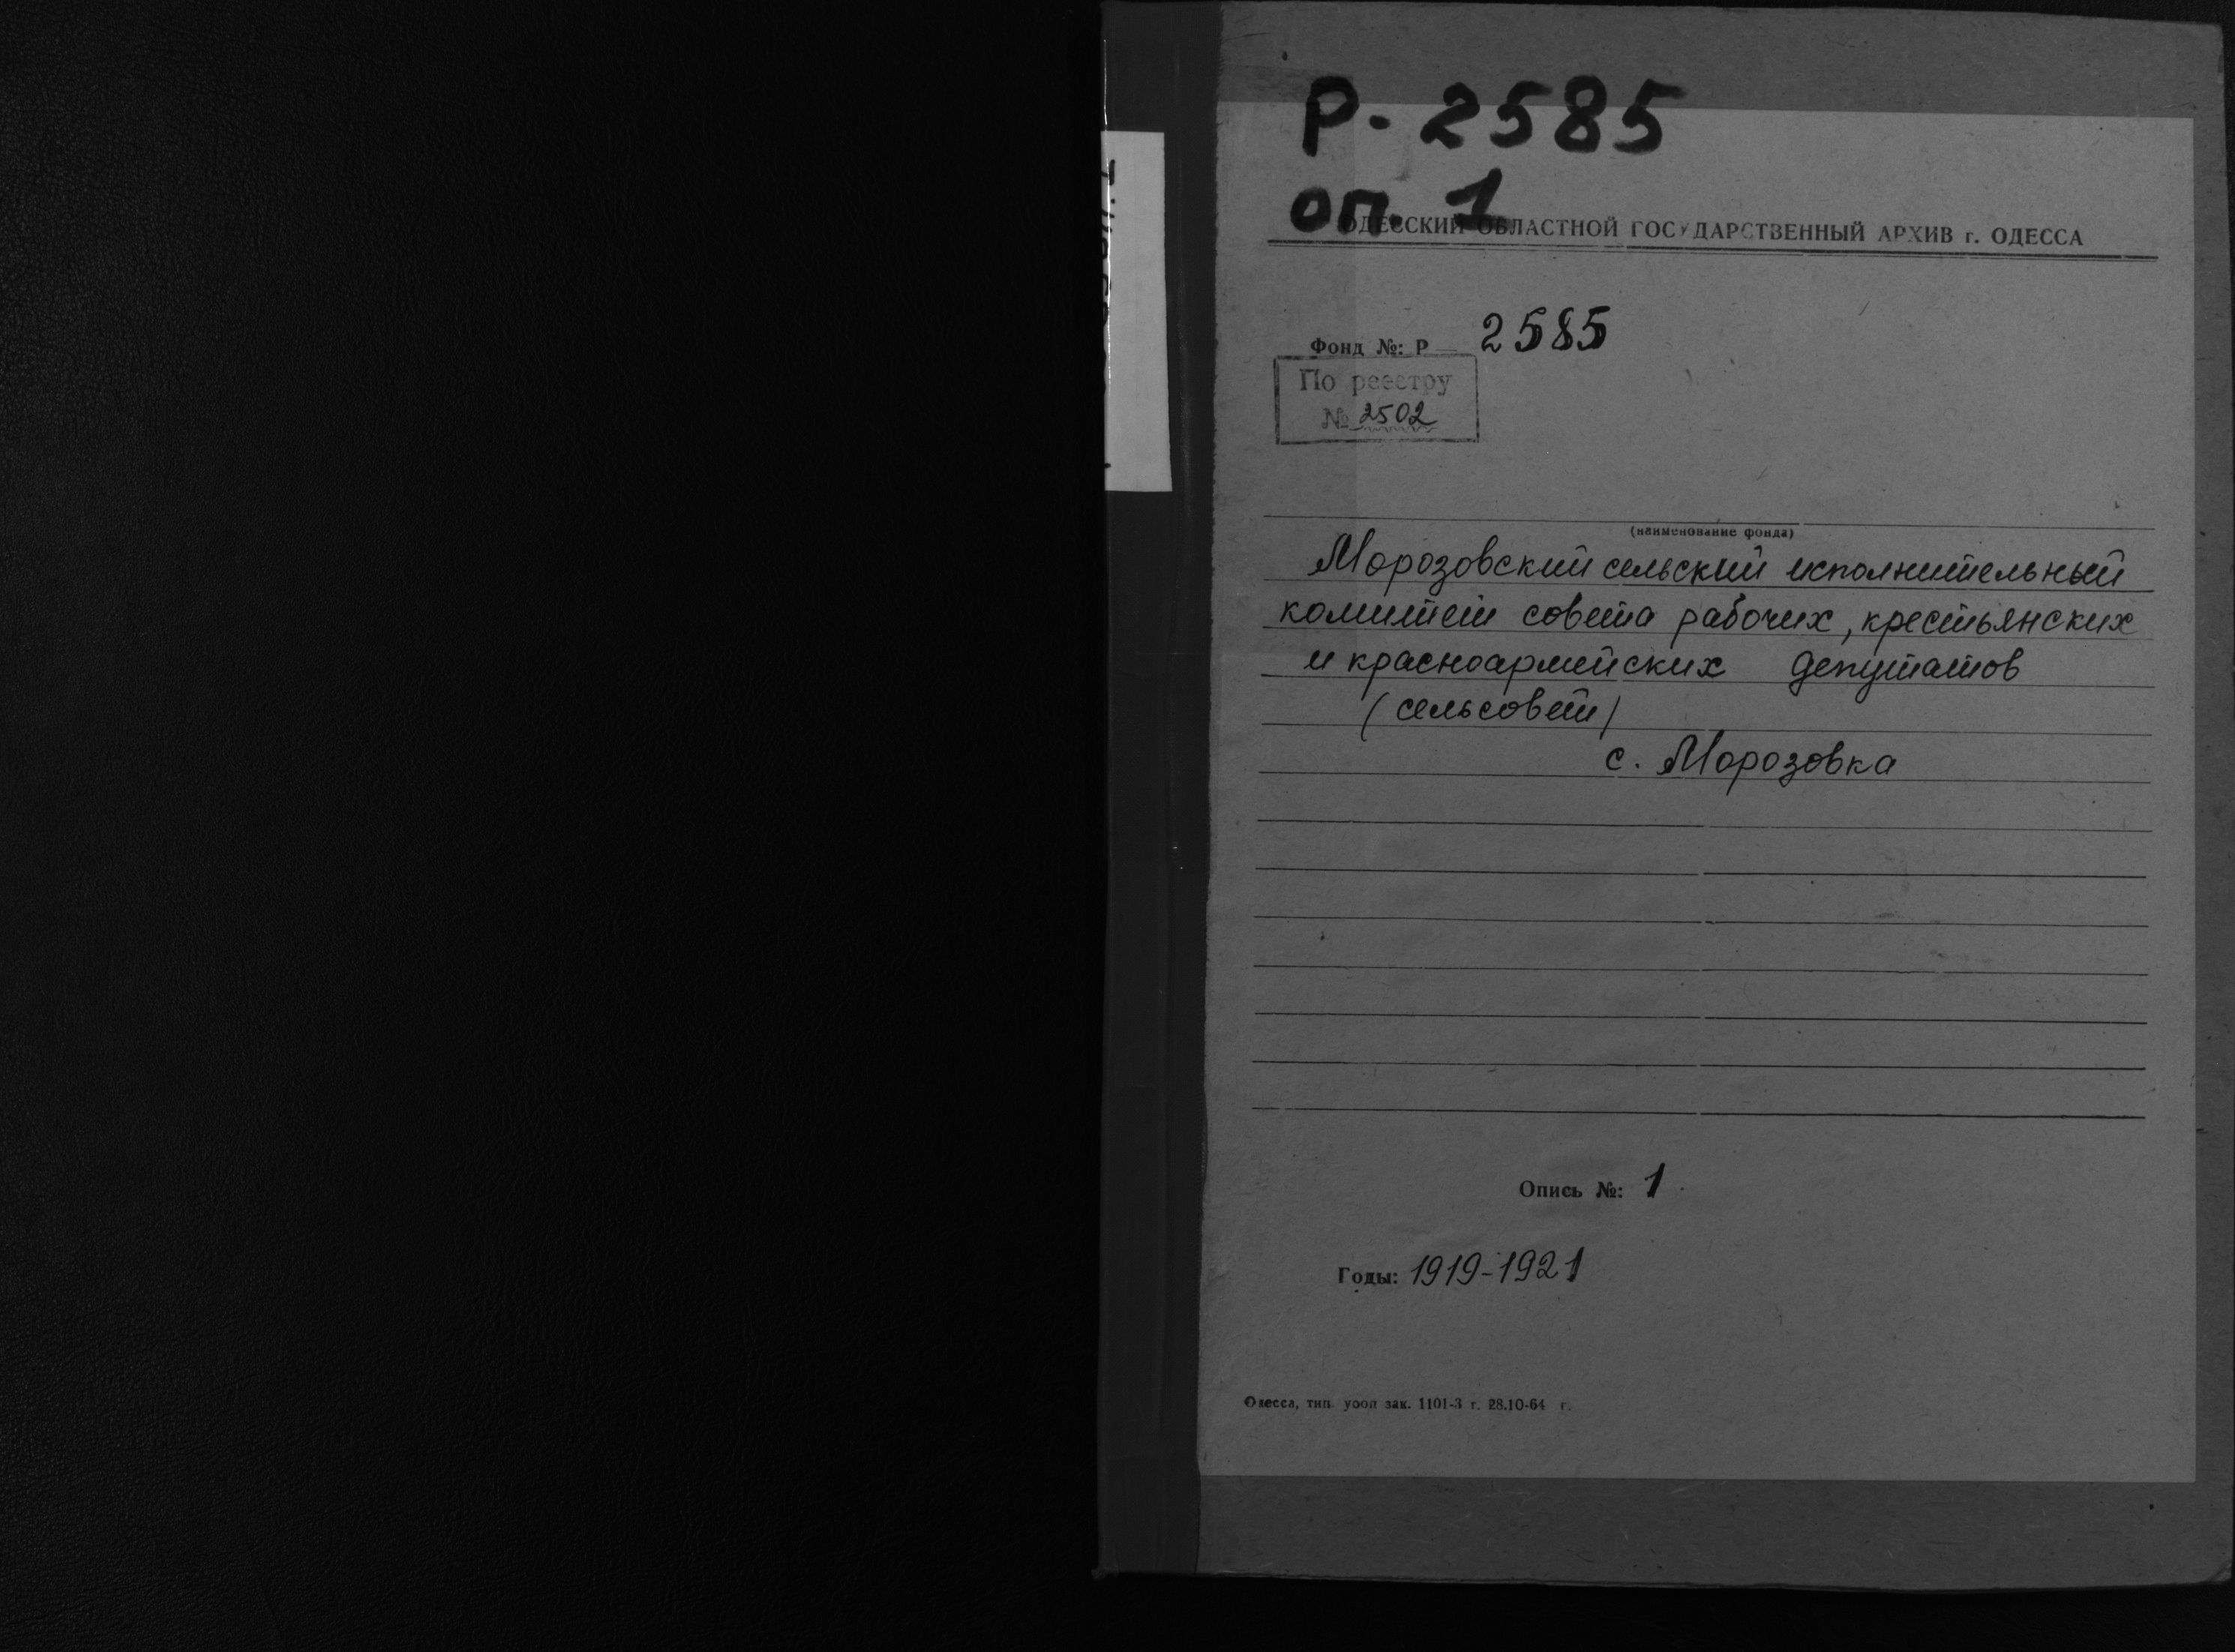 Р-2585
оп. 1
ОДЕССКИЙ ОБЛАСТНОЙ ГОСУДАРСТВЕННЫЙ АРХИВ г. ОДЕССА
Фонд №: Р 2585
По реестру
№ 2502
(наименование фонда)
Морозовский сельский исполнительный
комитет совета рабочих, крестьянских
и красноармейских депутатов
(сельсовет)
с. Морозовка
Опись №: 1
Годы: 1919-1921
Одесса, тип. уооп зак. 1101-3 т. 28.10-64 г.